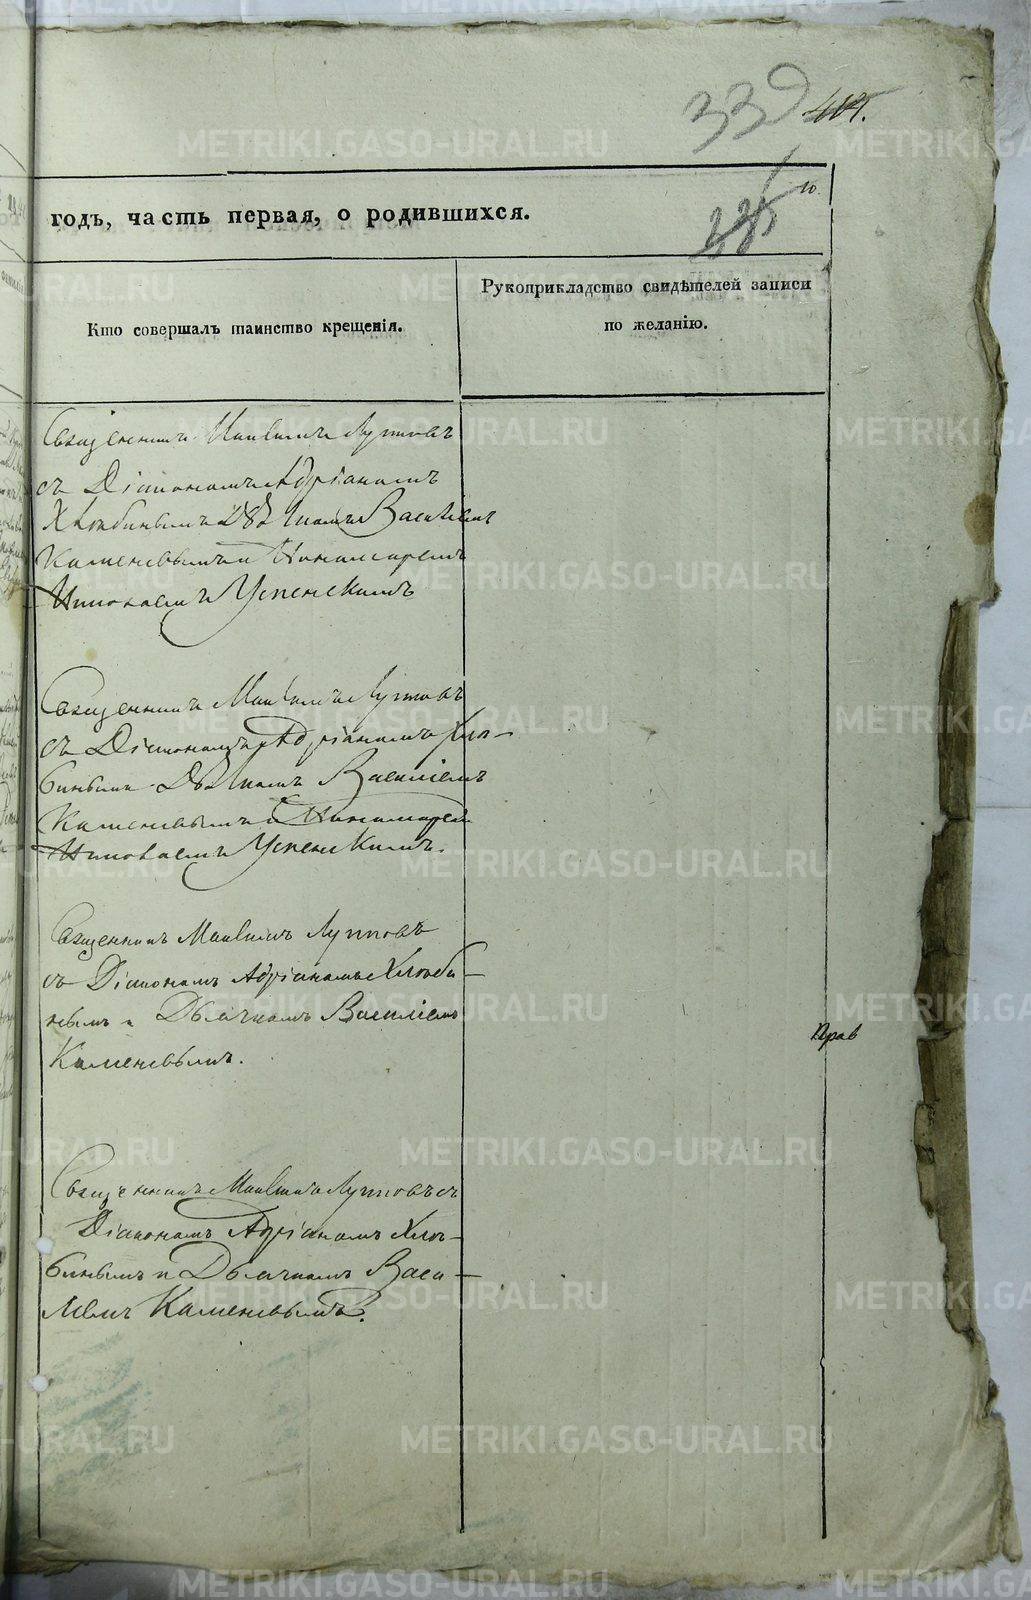 339
10
годъ, часть первая, о родившихся.
Кто совершалъ таинство крещенія.
Рукоприкладство свидѣтелей записи
по желанію.
Священникъ Максимъ Луповъ
съ Діакономъ Адріаномъ
Хлюбинымъ Дьячкомъ Василіемъ
Каменевымъ и Пономаремъ
Николаемъ Успенскимъ
Священникъ Максимъ Луповъ
съ Діакономъ Адріаномъ Хлю-
бинымъ Дьячкомъ Василіемъ
Каменевымъ и Пономаремъ
Николаемъ Успенскимъ.
Священникъ Максимъ Луповъ
съ Діакономъ Адріаномъ Хлюби-
нымъ и Дьячкомъ Василіемъ
Каменевымъ.
Прав
Священникъ Максимъ Луповъ съ
Діакономъ Адріаномъ Хлю-
бинымъ и Дьячкомъ Васи-
ліемъ Каменевымъ.
METRIKI.GASO-URAL.RU